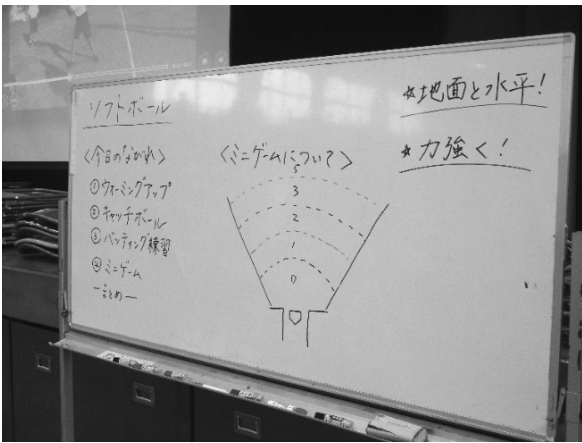 ソフトボール
<今日のながれ>
①ウォーミングアップ
②キャッチボール
③バッティング練習
④ミニゲーム
ーまとめー
<ミニゲームについて>
5
3
2
1
0
★地面と水平!
★力強く!